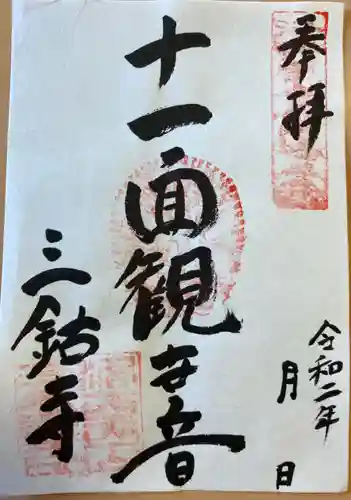 奉拝
令和二年
月 日
十一面観世音
三鈷寺